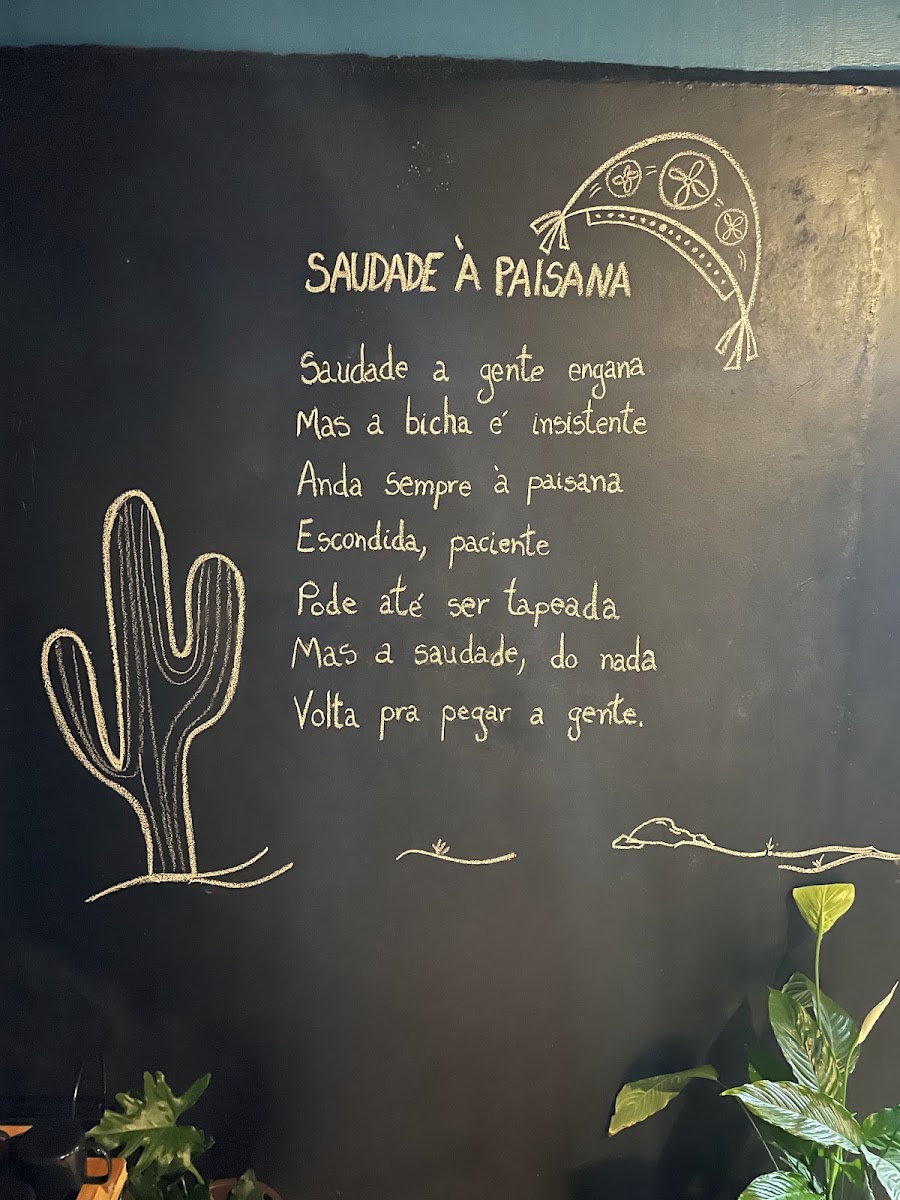 SAUDADE À PAISANA
Saudade a gente engana
Mas a bicha é insistente
Anda sempre à paisana
Escondida, paciente
Pode até ser tapeada
Mas a saudade, do nada
Volta pra pegar a gente.